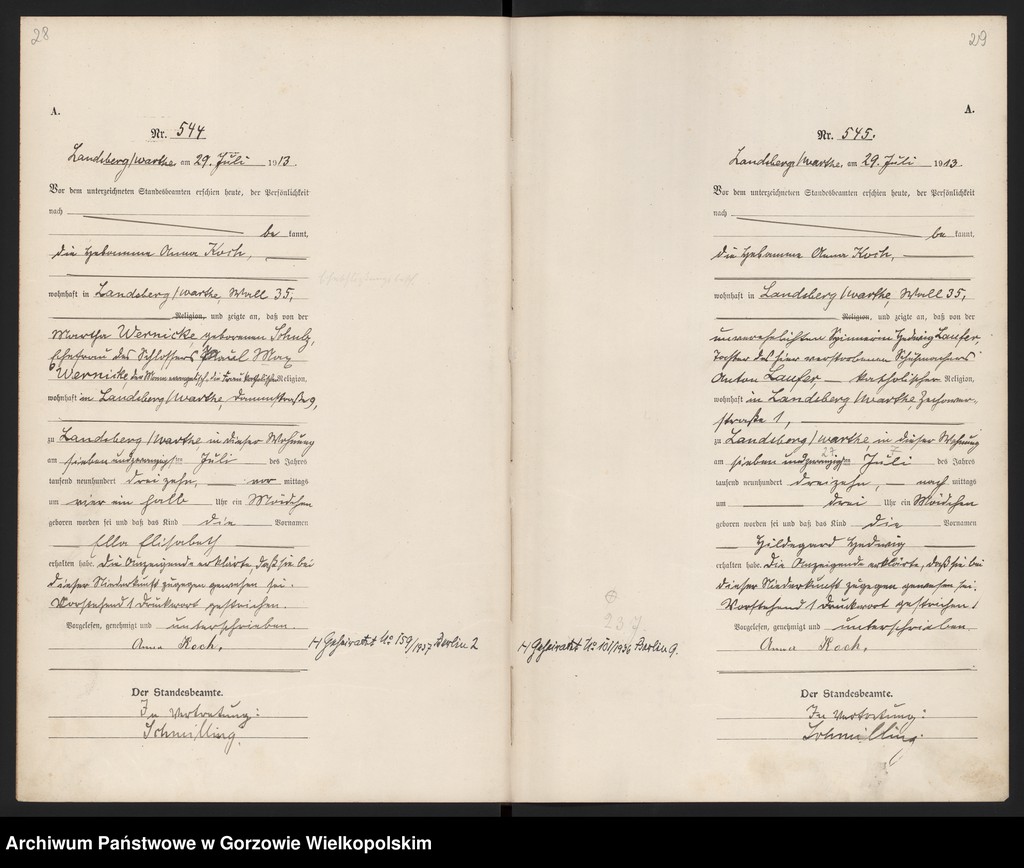 28
A.
Nr. 544
Landsberg/Warthe, am 29. Juli 1913.
Vor dem unterzeichneten Standesbeamten erschien heute, der Persönlichkeit
nach
be kannt,
die Hebamme Anna Koch,
wohnhaft in Landsberg/Warthe, Wall 35,
Religion, und zeigte an, daß von der
Martha Wernicke, geborenen Schulz,
Ehefrau des Schlossers Paul Max
Wernicke, der Mann evangelisch, die Frau katholischer Religion,
wohnhaft in Landsberg/Warthe, Dammstraße 9,
zu Landsberg/Warthe in dieser Wohnung
am sieben und zwanzigsten Juli des Jahres
tausend neunhundert dreizehn, vor mittags
um vier ein halb Uhr ein Mädchen
geboren worden sei und daß das Kind die Vornamen
Ella Elisabeth
erhalten habe. Die Anzeigende erklärte, daß sie bei
dieser Niederkunft zugegen gewesen sei.
Vorstehend 1 Druckwort gestrichen.
Vorgelesen, genehmigt und unterschrieben.
Anna Koch,
H Geheiratet No 159/1937 Berlin 2
Der Standesbeamte.
In Vertretung:
Schmilling.
29
A.
Nr. 545.
Landsberg/Warthe, am 29. Juli 1913.
Vor dem unterzeichneten Standesbeamten erschien heute, der Persönlichkeit
nach
be kannt,
die Hebamme Anna Koch,
wohnhaft in Landsberg/Warthe, Wall 35,
Religion, und zeigte an, daß von der
unverehelichten Spinnerin Hedwig Laufer,
Tochter des hier verstorbenen Schuhmachers
Anton Laufer, katholischer Religion,
wohnhaft in Landsberg/Warthe, Zechower-
straße 1,
zu Landsberg/Warthe, in dieser Wohnung
am sieben und zwanzigsten Juli des Jahres
27 7
tausend neunhundert dreizehn, nach mittags
um drei Uhr ein Mädchen
geboren worden sei und daß das Kind die Vornamen
Hildegard Hedwig
erhalten habe. Die Anzeigende erklärte, daß sie bei
dieser Niederkunft zugegen gewesen sei.
Vorstehend 1 Druckwort gestrichen.
Vorgelesen, genehmigt und unterschrieben
Anna Koch,
237.
H Geheiratet No 161/1936 Berlin 9.
Der Standesbeamte.
In Vertretung:
Schmilling.
Archiwum Państwowe w Gorzowie Wielkopolskim